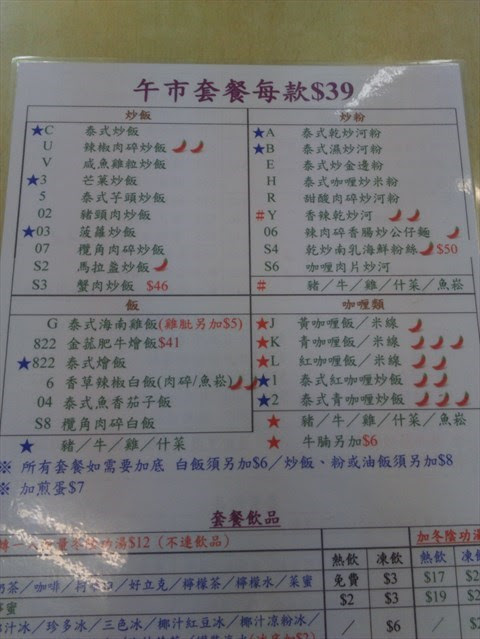 午市套餐每款$39
炒飯
★C 泰式炒飯
U 辣椒肉碎炒飯
V 咸魚雞粒炒飯
★3 芒菓炒飯
5 泰式芋頭炒飯
02 豬頸肉炒飯
★03 菠蘿炒飯
07 欖角肉碎炒飯
S2 馬拉盞炒飯
S3 蟹肉炒飯 $46
炒粉
★A 泰式乾炒河粉
★B 泰式濕炒河粉
E 泰式炒金邊粉
H 泰式咖喱炒米粉
R 甜酸肉碎炒河粉
#Y 香辣乾炒河
06 辣肉碎香腸炒公仔麵
S4 乾炒南乳海鮮粉絲 $50
S6 咖喱肉片炒河
# 豬／牛／雞／什菜／魚崧
飯
G 泰式海南雞飯(雞髀另加$5)
822 金菇肥牛燴飯$41
★822 泰式燴飯
6 香草辣椒白飯(肉碎/魚崧)
04 泰式魚香茄子飯
S8 欖角肉碎白飯
★ 豬／牛／雞／什菜
咖喱類
★J 黃咖喱飯／米線
★K 青咖喱飯／米線
★L 紅咖喱飯／米線
★1 泰式紅咖喱炒飯
★2 泰式青咖喱炒飯
★ 豬／牛／雞／什菜／魚崧
★ 牛腩另加$6
※ 所有套餐如需要加底 白飯須另加$6／炒飯、粉或油飯須另加$8
※ 加煎蛋$7
套餐飲品
冬陰功湯$12（不連飲品）
加冬陰功湯
熱飲 凍飲 熱飲 凍飲
奶茶／咖啡／好立克／檸檬茶／檸檬水／菜蜜 免費 $3 $17
$2 $3 $19
椰汁冰／珍多冰／三色冰／椰汁紅豆冰／椰汁凉粉冰／ ／ $6 ／